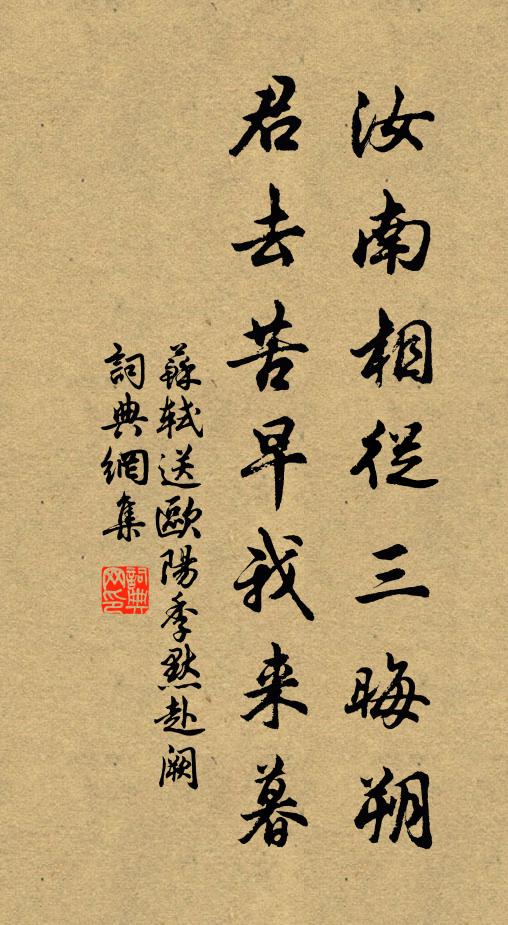 汝南相從三晦朔
君去苦早我来暮
蘇軾送歐陽季默赴闕
詞典網集
詞典网印